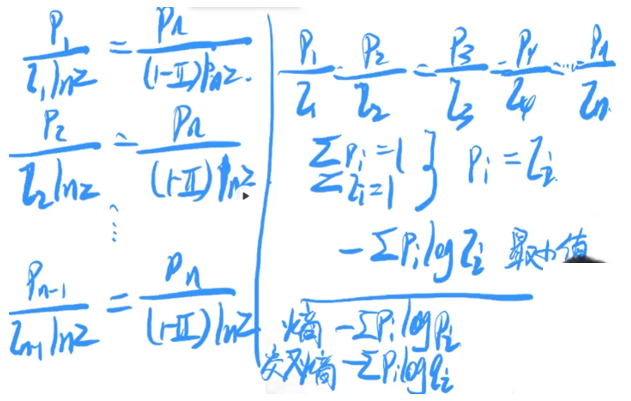 P₁/(Z₁ln2) = Pₙ/((1-Σ)ln2)
P₂/(Z₂ln2) = Pₙ/((1-Σ)ln2)
⋮
Pₙ₋₁/(Zₙ₋₁ln2) = Pₙ/((1-Σ)ln2)
P₁/Z₁ = P₂/Z₂ = P₃/Z₃ = P₄/Z₄ = … = Pₙ/Zₙ
ΣPᵢ=1
ΣZᵢ=1 } Pᵢ = Zᵢ
-ΣPᵢlogZᵢ 最小值
熵 -ΣPᵢlogPᵢ
交叉熵 -ΣPᵢlogqᵢ